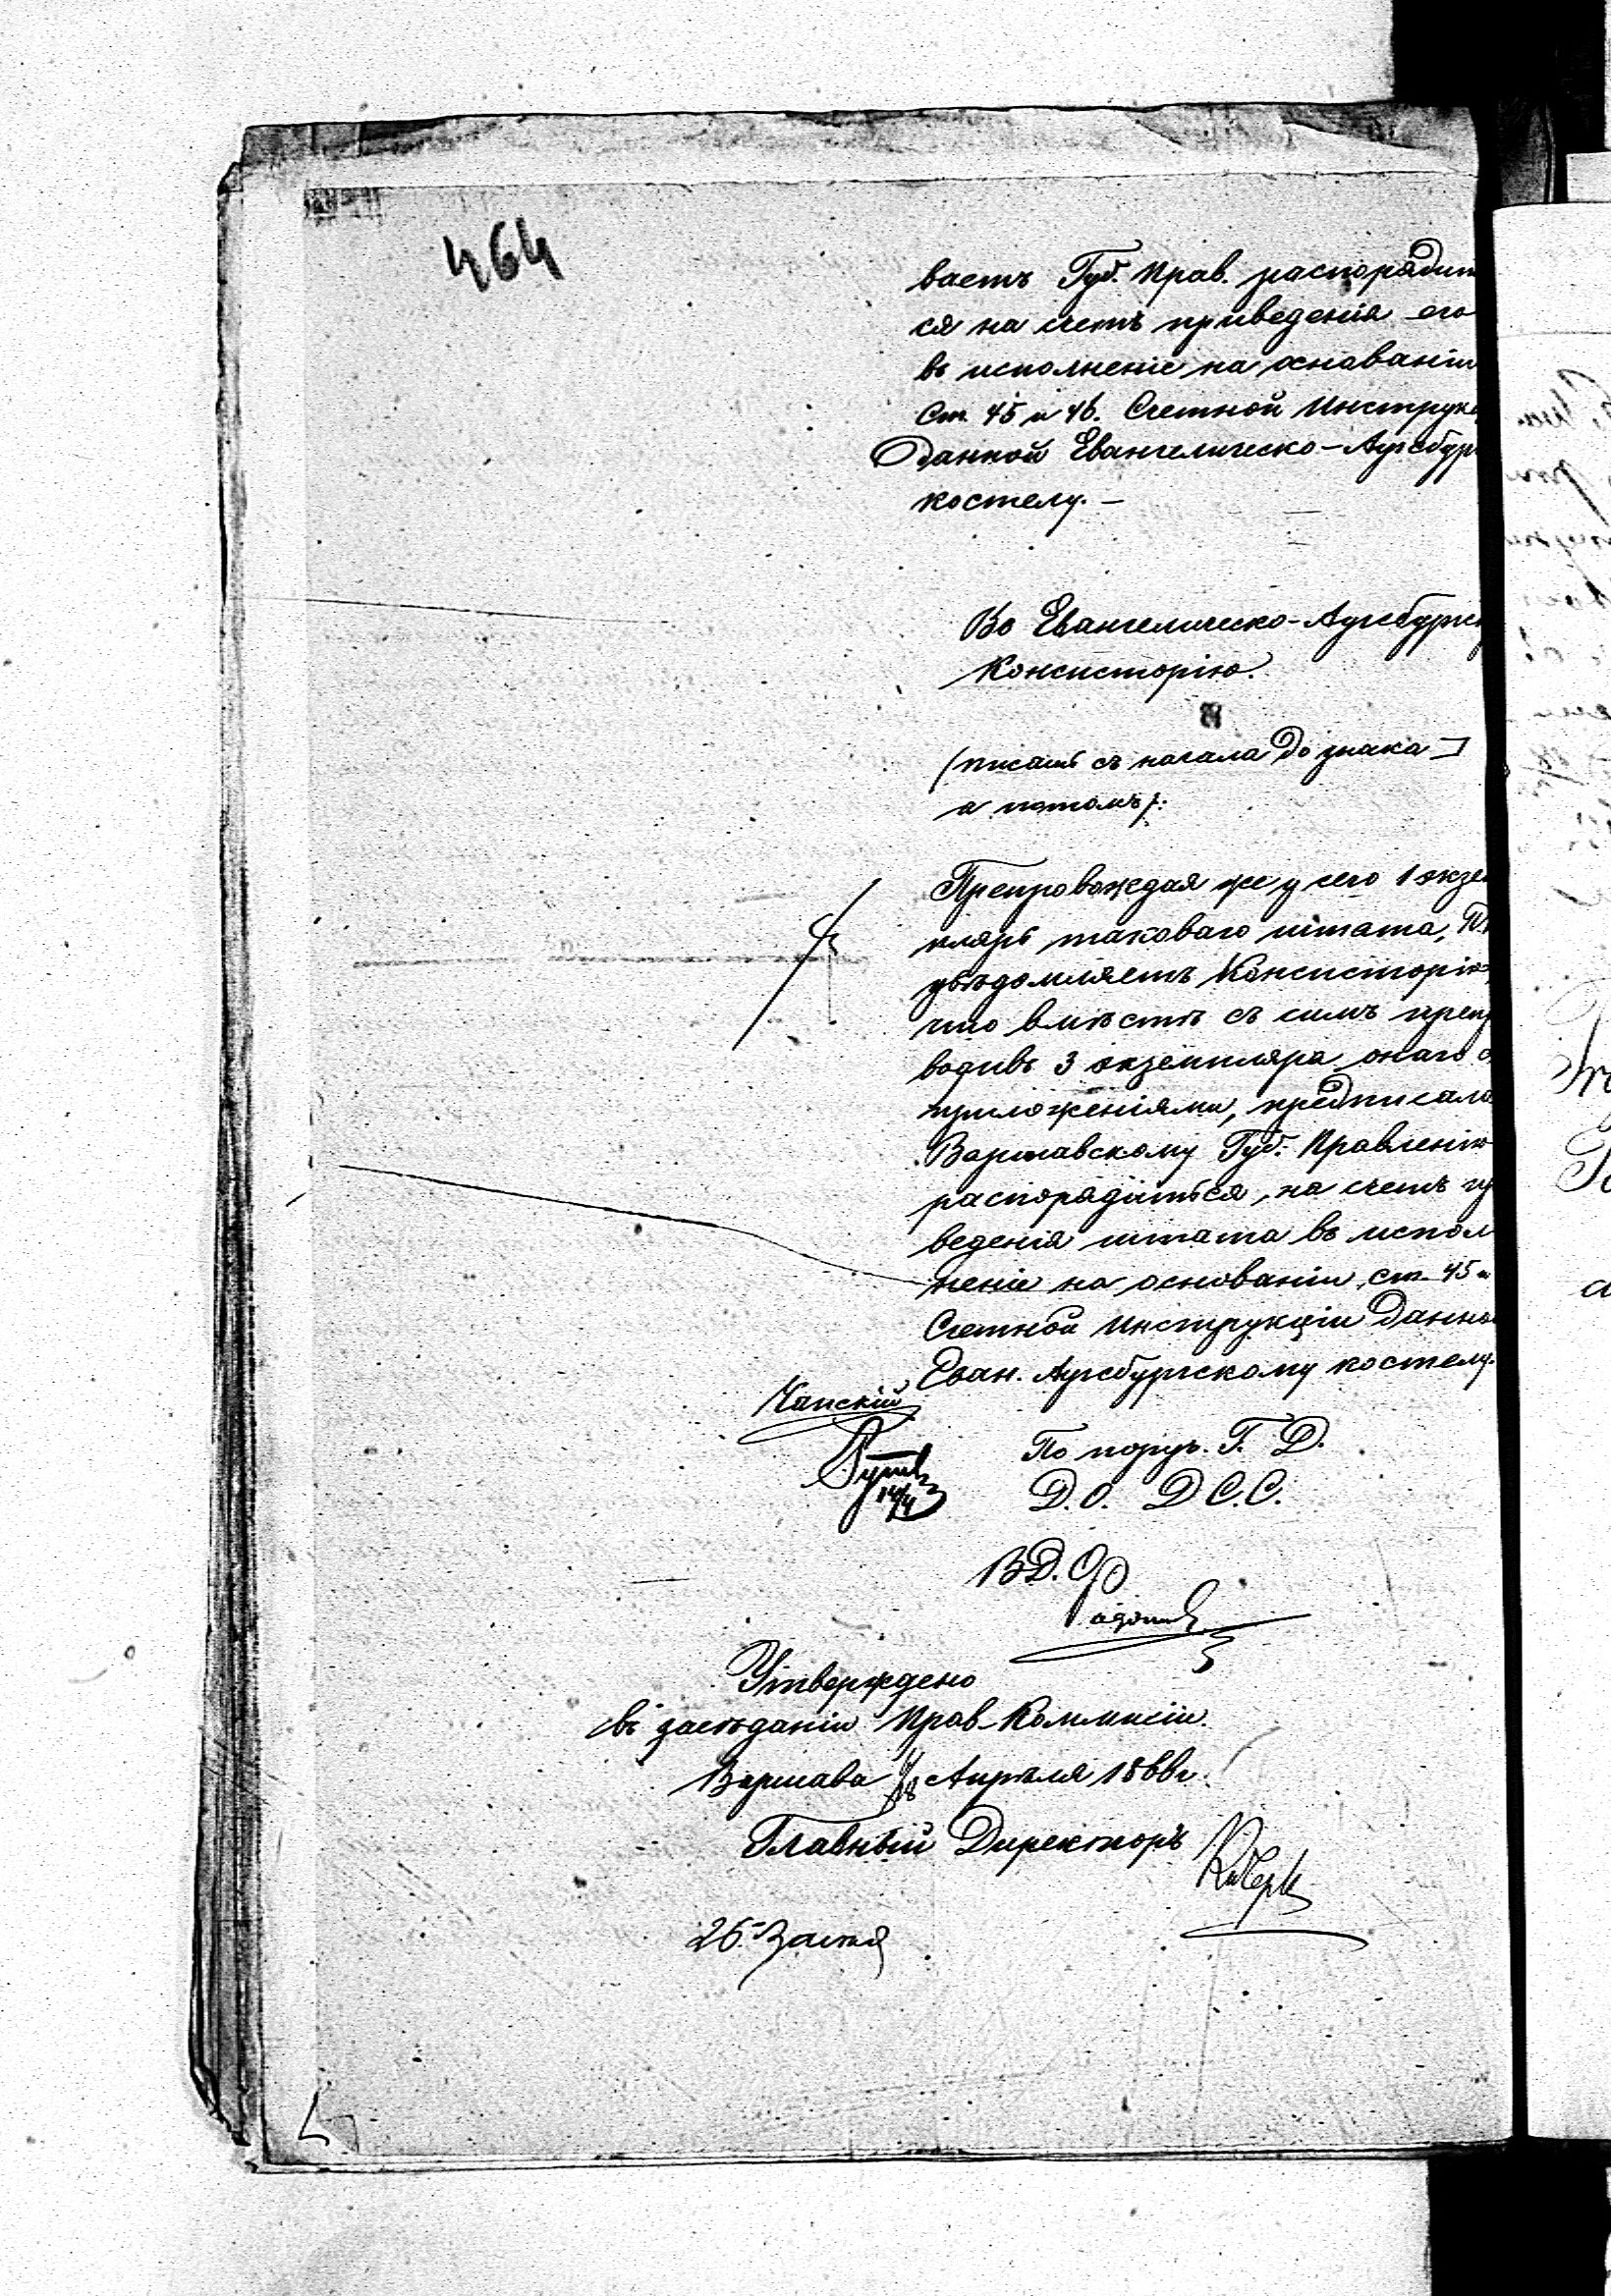 464
ваетъ Губ. Прав. распорядит
ся на счетъ приведенія его
въ исполненіе на основаніи
Ст. 45 и 46. Счетной Инструк
данной Евангелическо-Аугсбур
костелу. —
Во Евангелическо-Аугсбургс
Консисторію.
(писать съ начала до знака ⊐
а потомъ):
Препровождая же у сего 1 экзем
пляръ таковаго штата, П.
увѣдомляетъ Консисторію,
что вмѣстѣ съ симъ препр
водивъ 3 экземпляра онаго с
приложеніями, предписала
Варшавскому Губ. Правленію
распорядиться, на счетъ пр
веденія штата въ испол
неніе на основаніи ст. 45 и
Счетной Инструкціи данно
Еван. Аугсбургскому костелу.
Чапскій
14/4
По поруч. Г. Д.
Д. О. Д С. С.
В Д. О
Утверждено
въ засѣданіи Прав. Коммисіи.
Варшава Апрѣля 1866 г.
Главный Директоръ
26